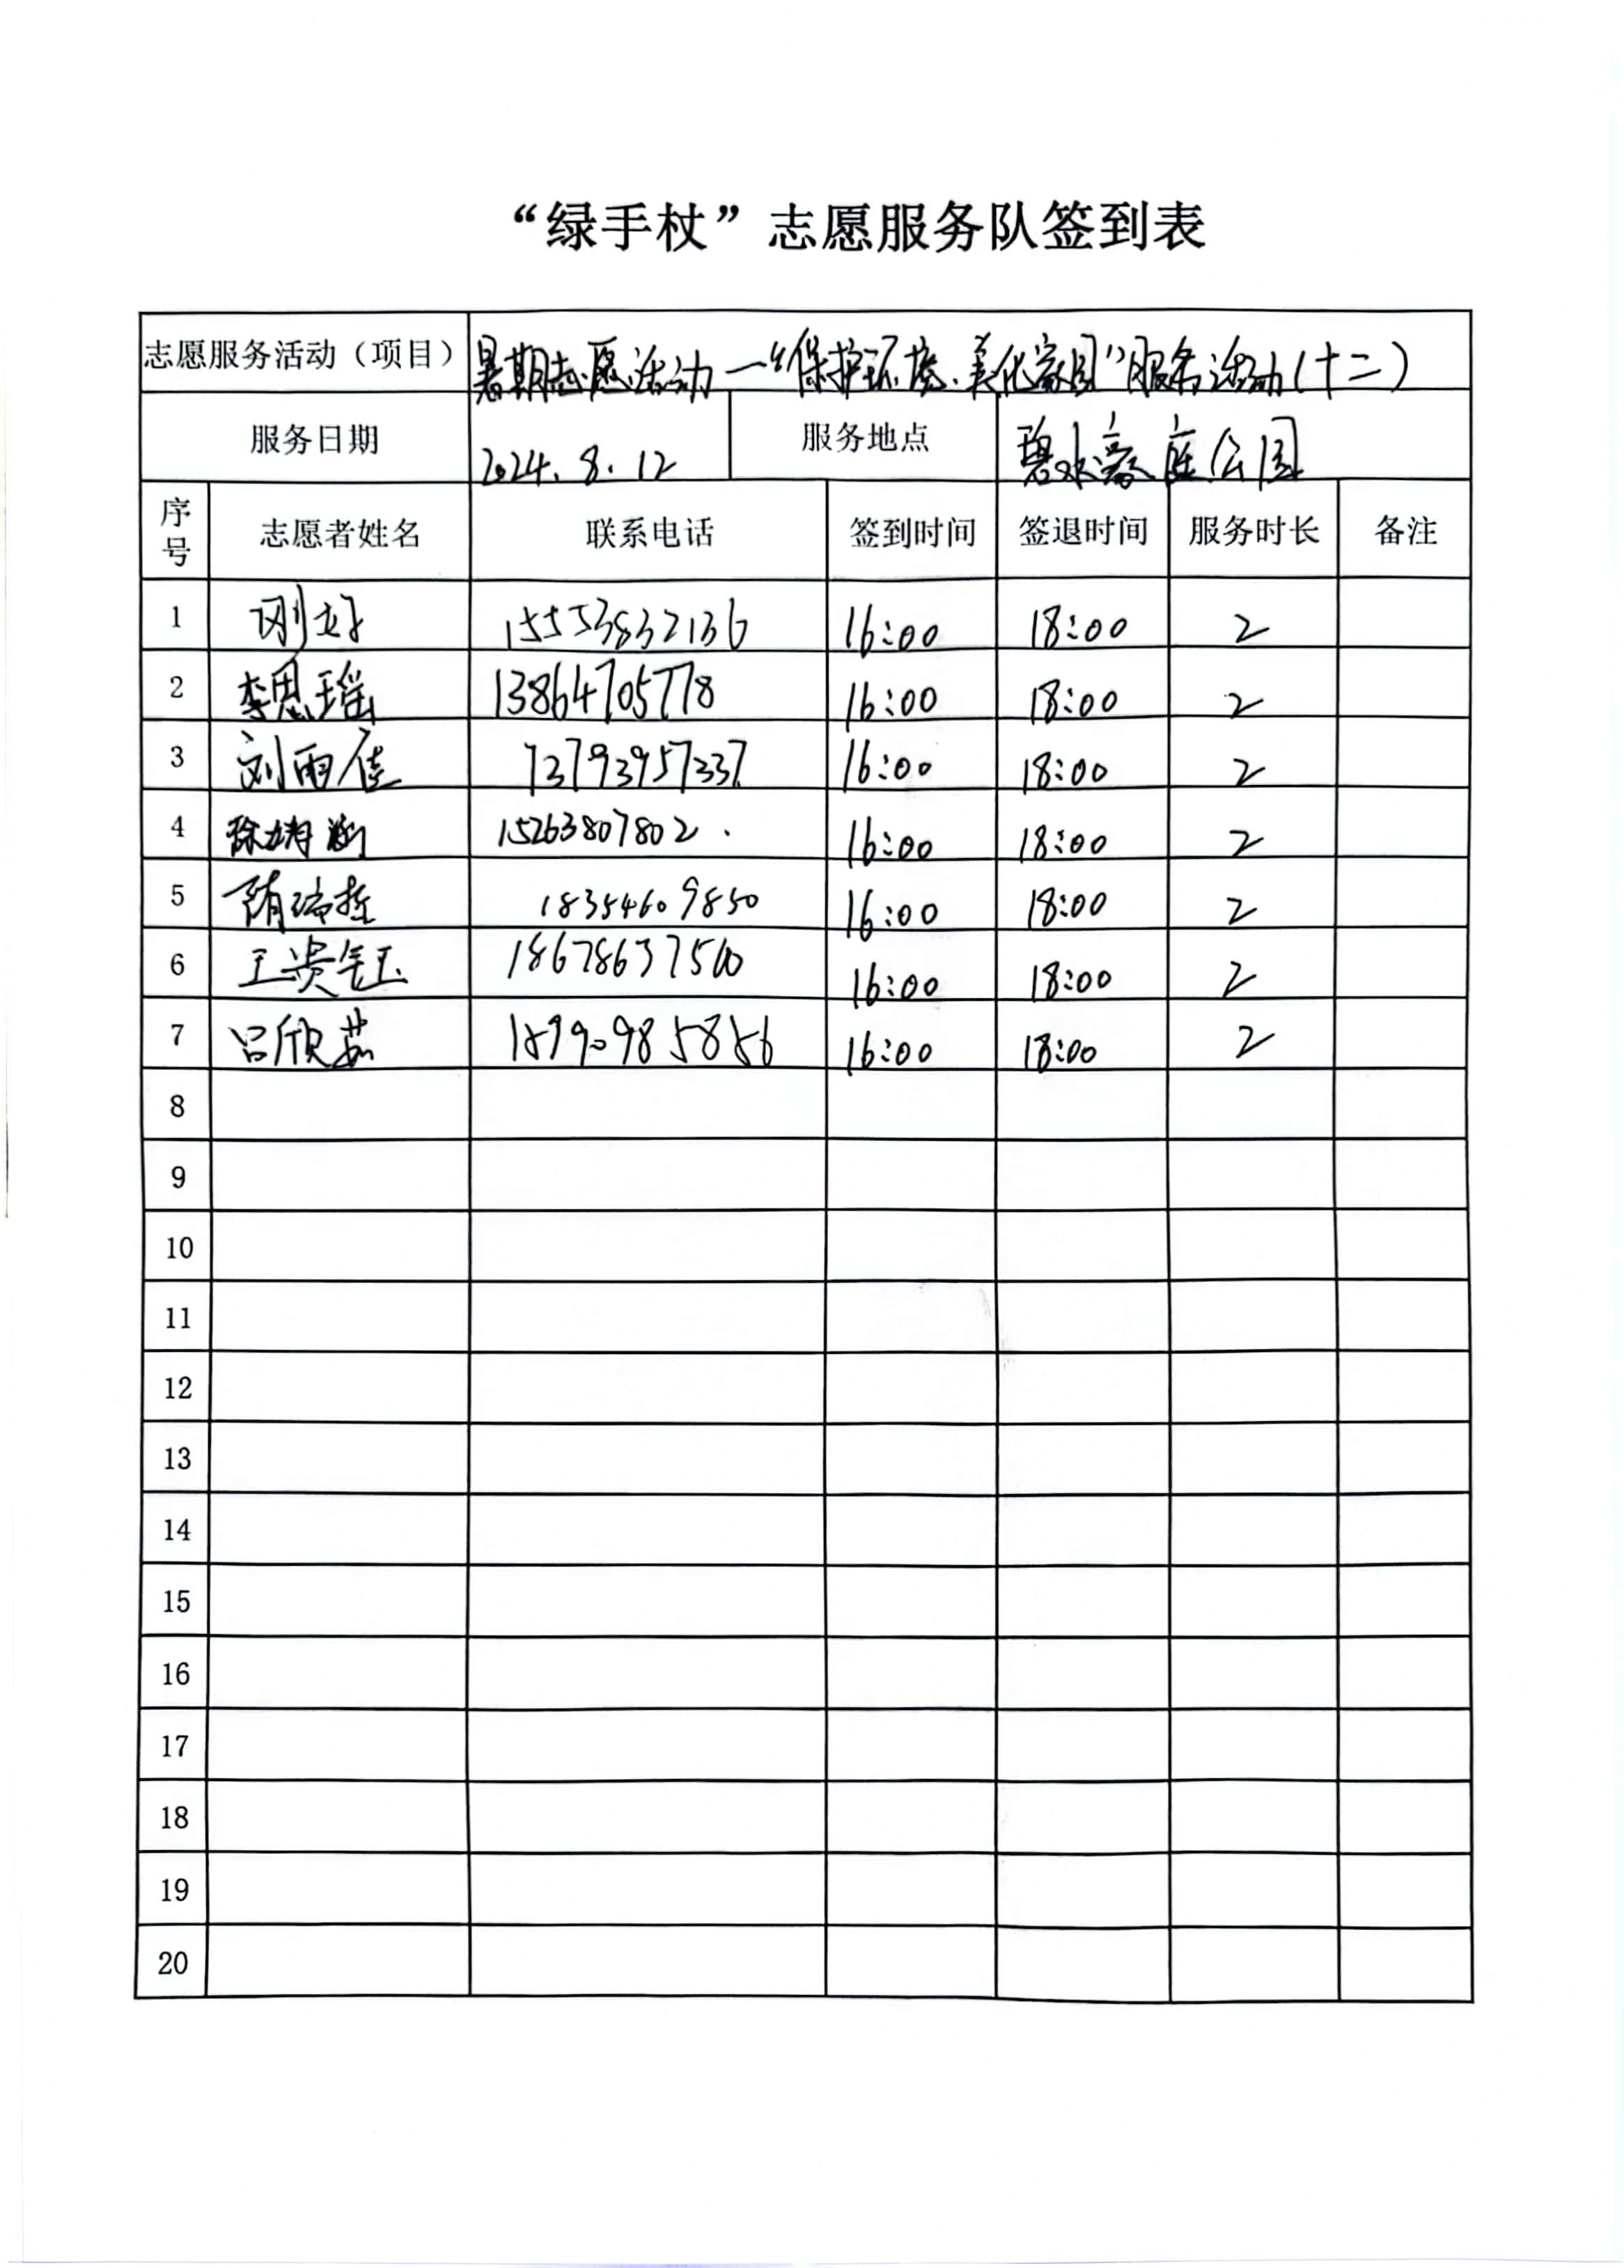 “绿手杖”志愿服务队签到表
志愿服务活动（项目） 暑期志愿活动—“保护环境、美化家园”服务活动(十二)
服务日期 2024.8.12 服务地点 碧水豪庭公园
序号 志愿者姓名 联系电话 签到时间 签退时间 服务时长 备注
1 15553832136 16:00 18:00 2
2 李思瑶 13864705778 16:00 18:00 2
3 刘雨佳 13793957337 16:00 18:00 2
4 15263807802. 16:00 18:00 2
5 隋 18354609850 16:00 18:00 2
6 王贵钰 18678637560 16:00 18:00 2
7 吕欣茹 16:00 18:00 2
8
9
10
11
12
13
14
15
16
17
18
19
20